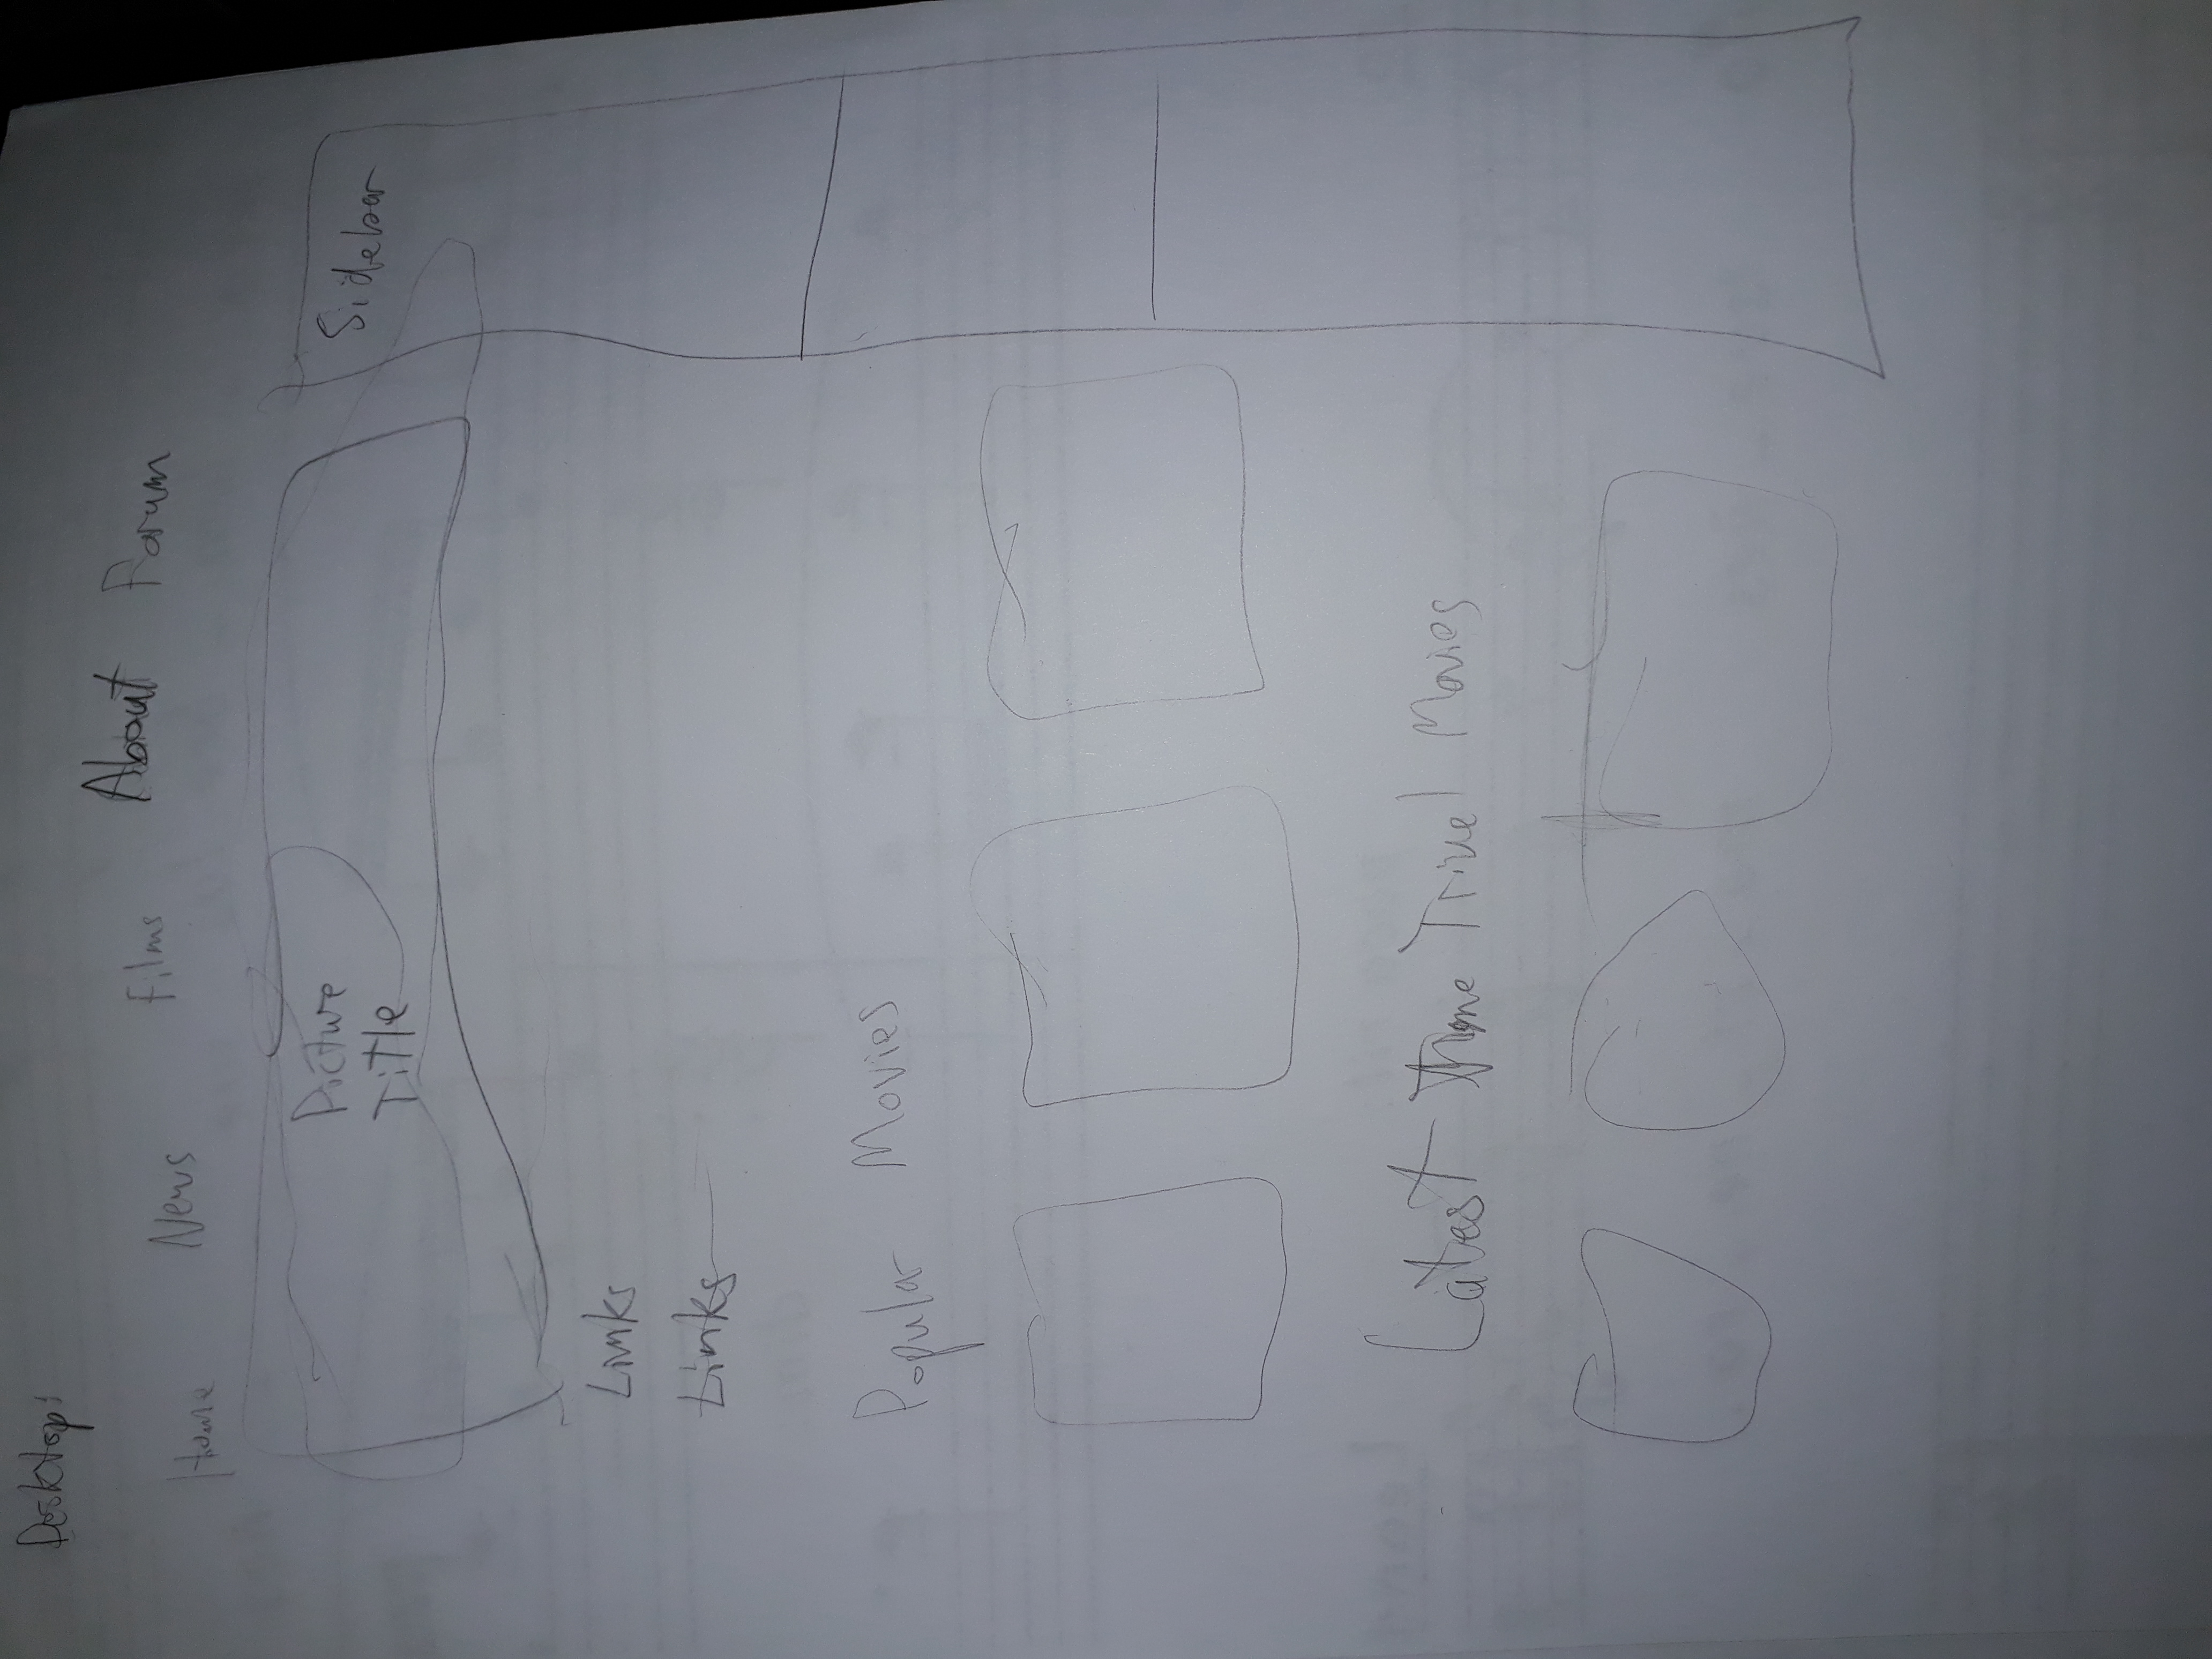 Desktop:
Home News Films About Forum
Picture
Title
Sidebar
Links
Links
Popular Movies
Latest Time Trivel Movies